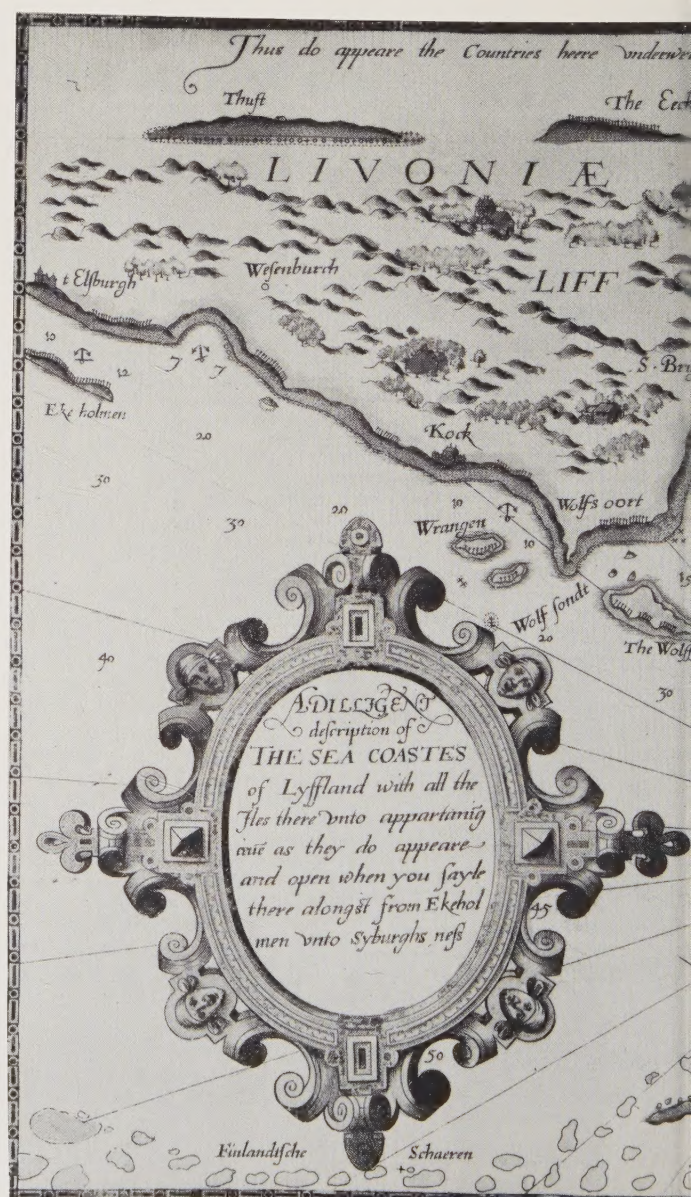 Thus do appeare the Countries heere vnderwe
Thust
The Eec
LIVONIÆ
t Elsburgh
Wesenburch
LIFF
10
7
7
12
S. Bri
Eke holmen
20
Kock
30
30
20
10
Wolfs oort
Wrangen
10
15
Wolf sondt
20
The Wolff
40
30
A DILLIGENT
description of
THE SEA COASTES
of Lyffland with all the
Iles there vnto appartaniḡ
euē as they do appeare
and open when you sayle
there alongst from Ekehol
men vnto Syburghs ness
45
50
Finlandische Schaeren